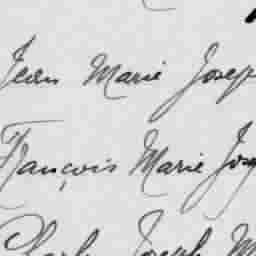 Jean Marie Josep
François Marie Jos
Joseph M